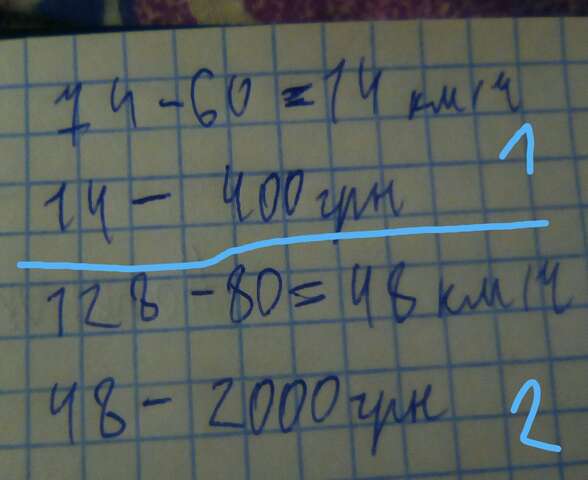 74-60=14 км/ч
1
14 - 400 грн
128-80=48 км/ч
48 - 2000 грн
2